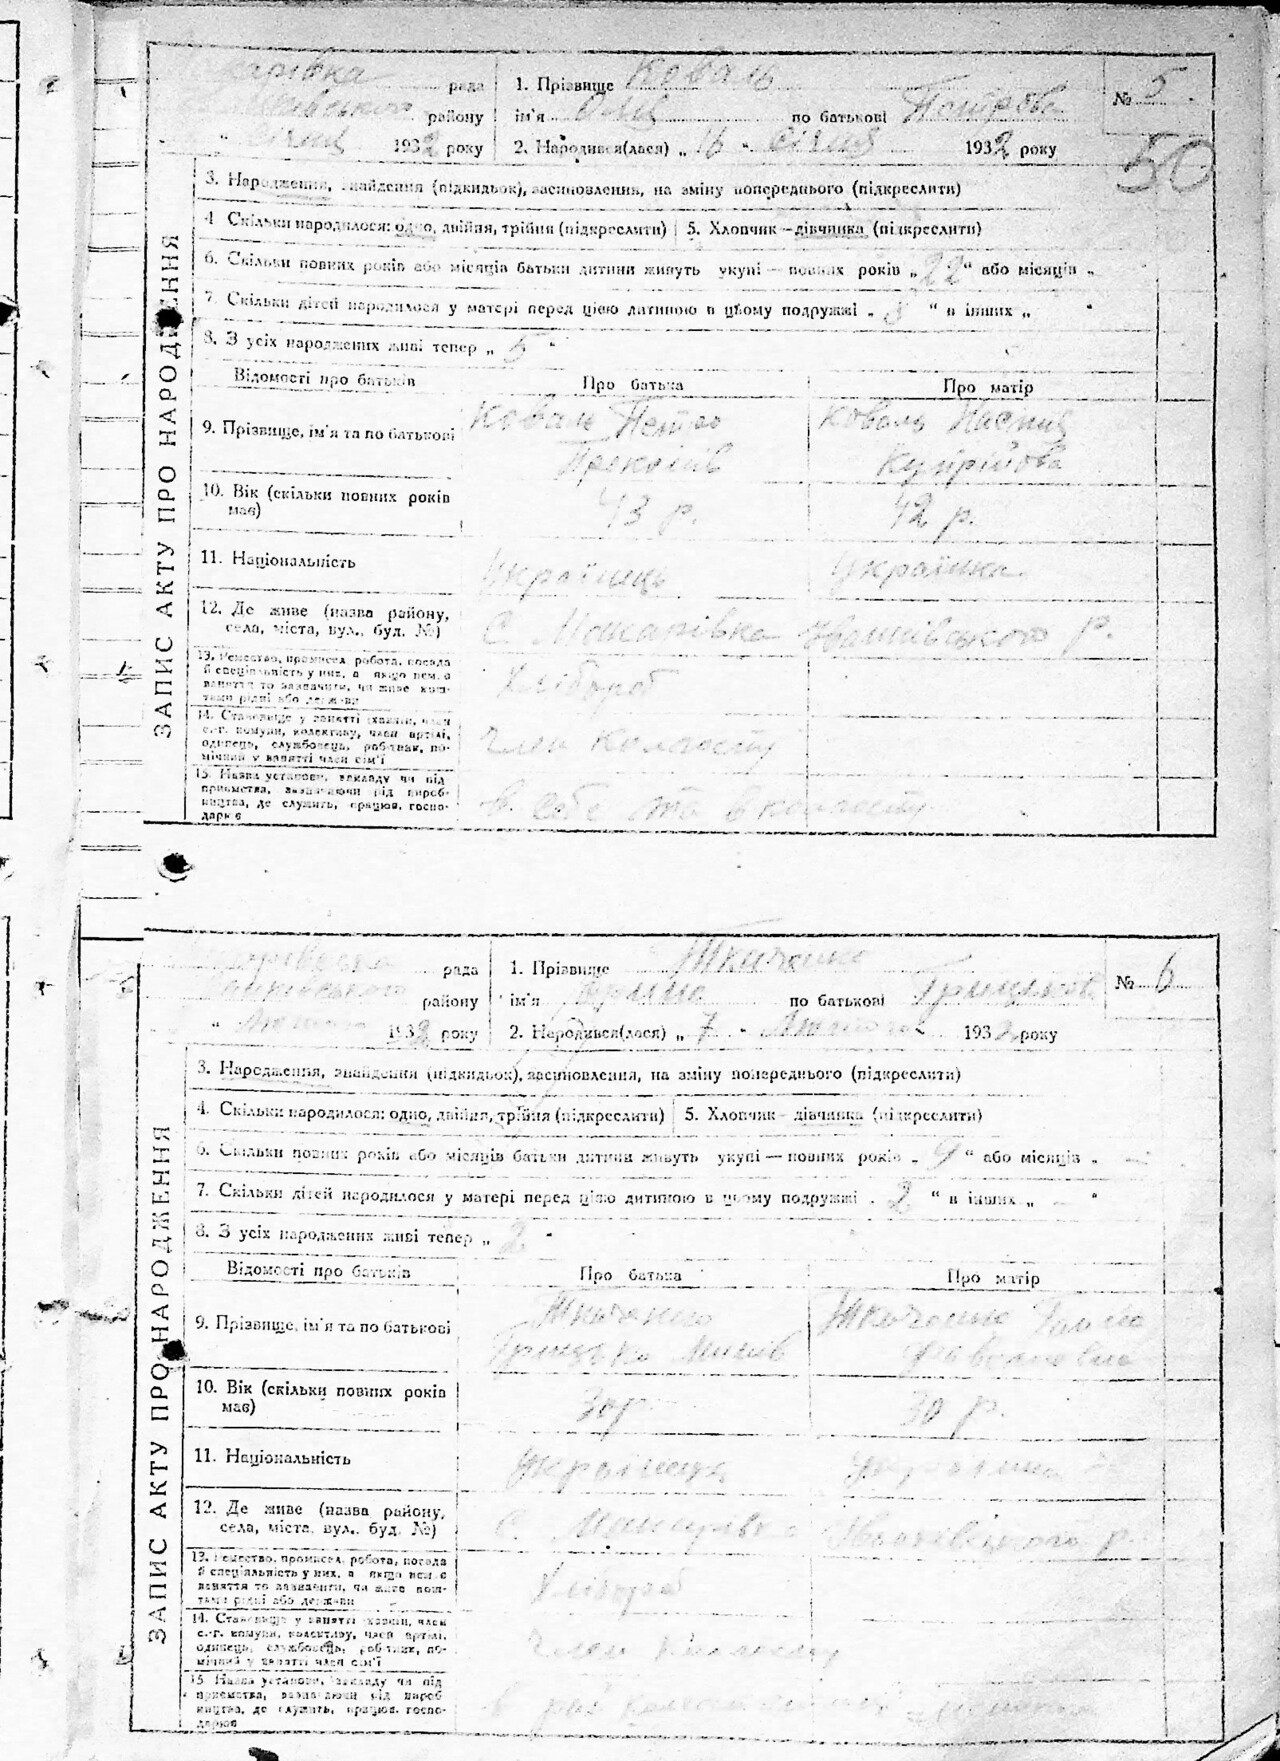 рада
району
1932 року
1. Прізвище Коваль
ім'я Оля по батькові Петрова
2. Народився(лася) „ 16 " січня 1932 року
№ 5
50
ЗАПИС АКТУ ПРО НАРОДЖЕННЯ
3. Народження, знайдення (підкидьок), засиновлення, на зміну попереднього (підкреслити)
4 Скільки народилося: одно, двійня, трійня (підкреслити) 5. Хлопчик – дівчинка (підкреслити)
6. Скільки повних років або місяців батьки дитини живуть укупі — повних років „ 22 “ або місяців „
7. Скільки дітей народилося у матері перед цією дитиною в цьому подружжі „ 8 “ в інших „ "
8. З усіх народжених живі тепер „ 5 "
Відомості про батьків Про батька Про матір
9. Прізвище, ім'я та по батькові Коваль Петро Коваль
Прокопів Купрійова
10. Вік (скільки повних років має) 43 р. 42 р.
11. Національність Українець Українка
12. Де живе (назва району, села, міста, вул., буд. №) С. р.
13. Ремество, промисел, робота, посада
й спеціяльність у них, а якщо нема
заняття то зазначити, чи живе кош-
тами рідні або держави
Хлібороб
14. Становище у занятті (хазяїн, член
с.-г. комуни, колективу, член артілі,
одинець, службовець, робітник, по-
мічний у занятті член сім'ї
член колгоспу
15. Назва установи, закладу чи під
приємства, зазначаючи рід вироб-
ництва, де служить, працює, госпо-
дарює
в себе та в колгоспу
рада
району
1932 року
1. Прізвище Ткаченко
ім'я по батькові
2. Народився(лася) „ 7 " Лютого 1932 року
№ 6
ЗАПИС АКТУ ПРО НАРОДЖЕННЯ
3. Народження, знайдення (підкидьок), засиновлення, на зміну попереднього (підкреслити)
4. Скільки народилося: одно, двійня, трійня (підкреслити) 5. Хлопчик – дівчинка (підкреслити)
6. Скільки повних років або місяців батьки дитини живуть укупі — повних років „ 9 “ або місяців „ —
7. Скільки дітей народилося у матері перед цією дитиною в цьому подружжі „ 2 “ в інших „ — "
8. З усіх народжених живі тепер „ 2 "
Відомості про батьків Про батька Про матір
9. Прізвище, ім'я та по батькові Ткаченко Ткаченко
Грицько
10. Вік (скільки повних років має) 30 р. 30 р.
11. Національність Українець Українка
12. Де живе (назва району, села, міста, вул., буд. №) С. р.
13. Ремество, промисел, робота, посада
й спеціяльність у них, а якщо нема
заняття то зазначити, чи живе кош-
тами рідні або держави
Хлібороб
14. Становище у занятті (хазяїн, член
с.-г. комуни, колективу, член артілі,
одинець, службовець, робітник, по-
мічний у занятті член сім'ї
член колгоспу
15 Назва установи, закладу чи під
приємства, зазначаючи рід вироб
ництва, де служить, працює, госпо-
дарює